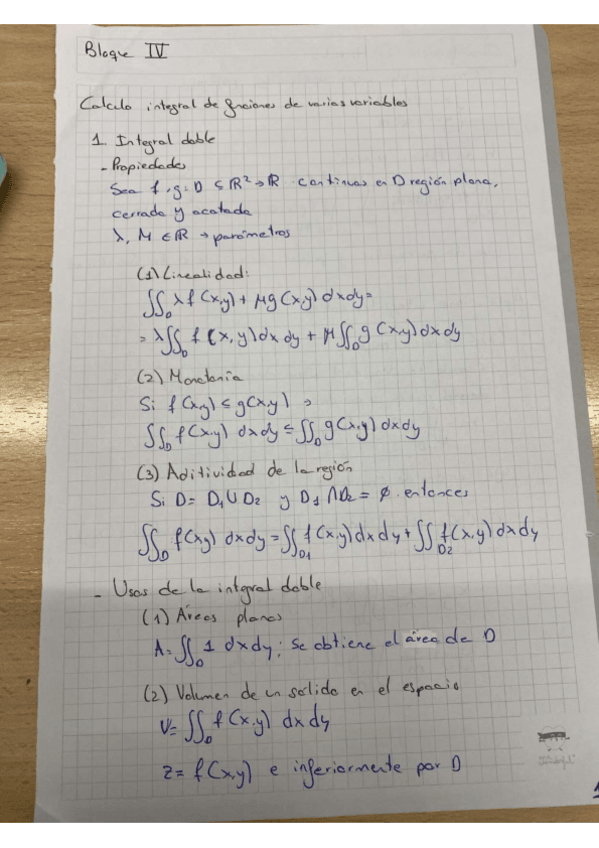 Bloque IV
Calculo integral de funciones de varias variables
1. Integral doble
- Propiedades
Sea f, g: D ⊆ ℝ² → ℝ continuas en D región plana,
cerrada y acotada
λ, M ∈ ℝ → parámetros
(1) Linealidad:
∬_D λf(x,y) + μg(x,y) dxdy=
= λ∬_D f(x,y)dxdy + μ∬_D g(x,y)dxdy
(2) Monotonía
Si f(x,y) ≤ g(x,y) ⇒
∬_D f(x,y) dxdy ≤ ∬_D g(x,y) dxdy
(3) Aditividad de la región
Si D = D₁ ∪ D₂ y D₁ ∩ D₂ = ∅ entonces
∬_D f(x,y) dxdy = ∬_D1 f(x,y)dxdy + ∬_D2 f(x,y)dxdy
- Usos de la integral doble
(1) Áreas planas
A=∬_D 1 dxdy: Se obtiene el área de D
(2) Volumen de un sólido en el espacio
V=∬_D f(x,y) dxdy
z = f(x,y) e inferiormente por D
1